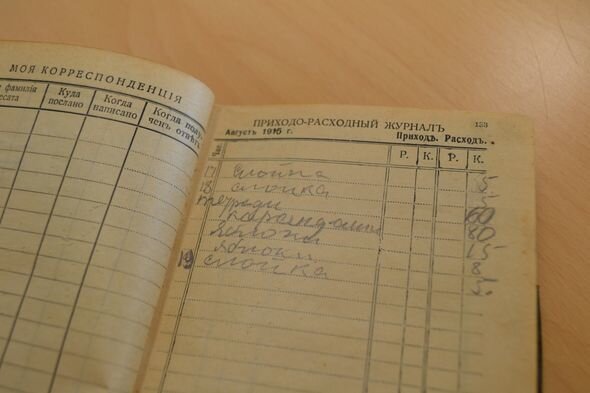 МОЯ КОРРЕСПОНДЕНЦІЯ
фамилія
Куда послано
Когда написано
Когда полу-
чен. отвѣт
ПРИХОДО-РАСХОДНЫЙ ЖУРНАЛЪ
133
Августъ 1916 г.
Приходъ. Расходъ.
Чис.
Р. К. Р. К.
17 слойка 5
18 слойка
тетради 60
80
яблоки 15
яблоки 8
19 слойка